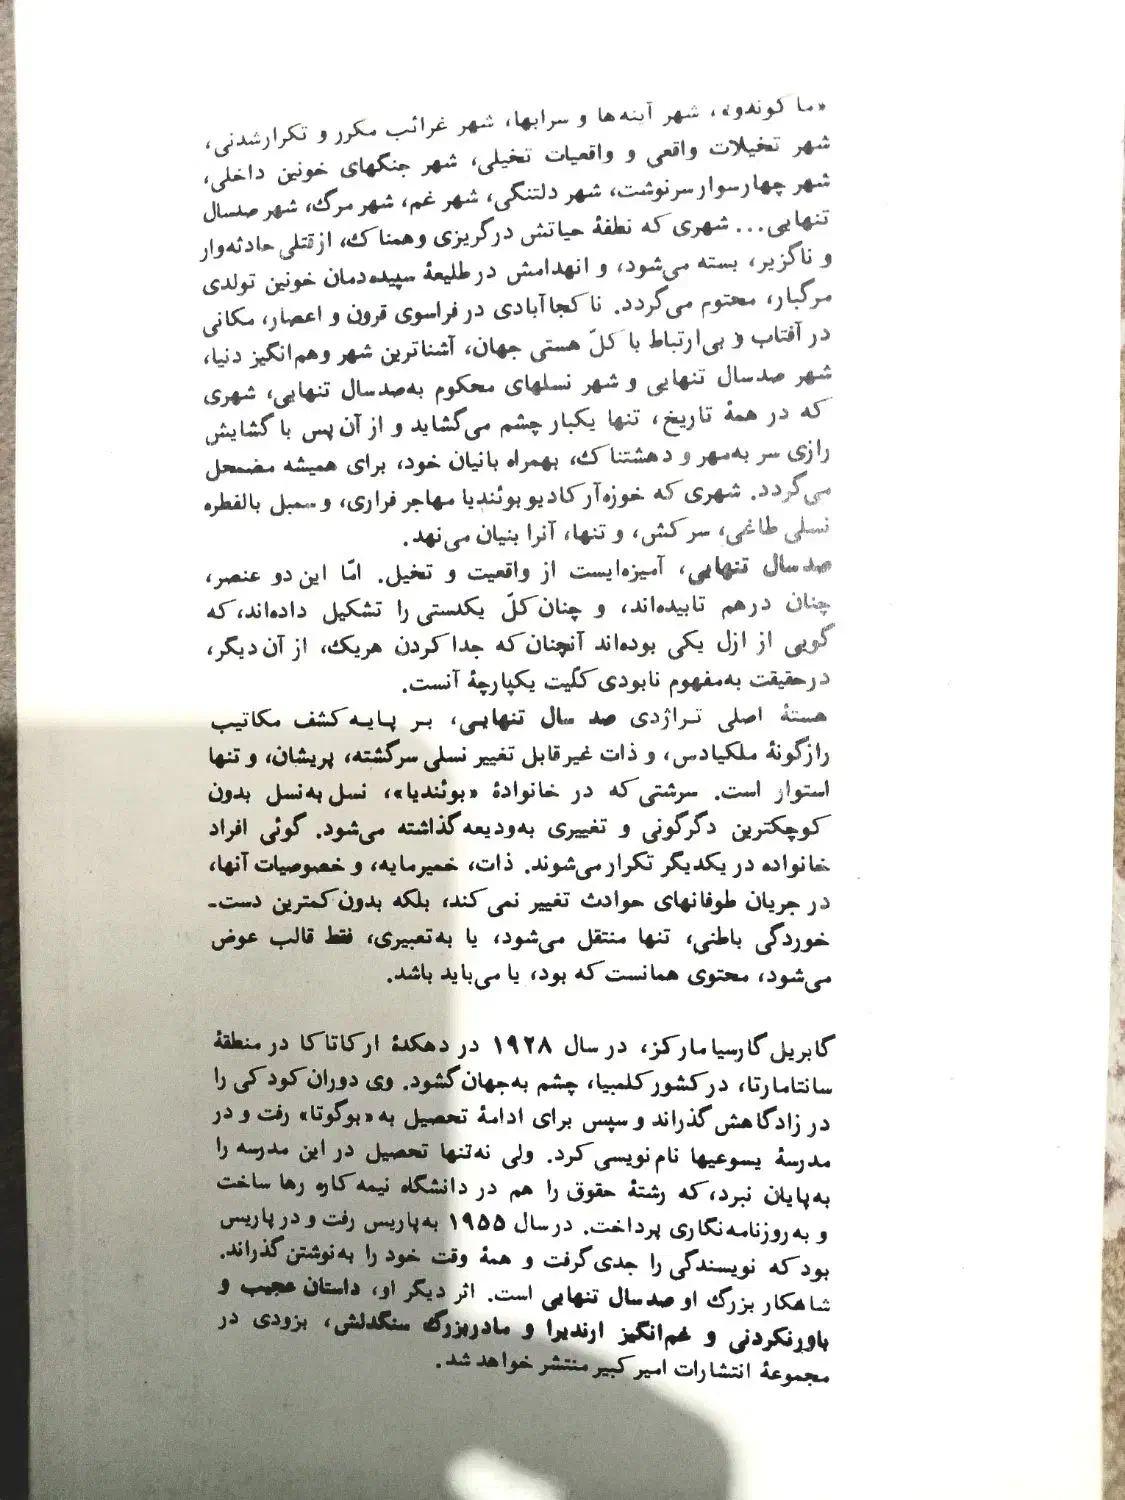 «ماکوندو»، شهر آینه‌ها و سرابها، شهر غرائب مکرر و تکرارشدنی،
شهر تخیلات واقعی و واقعیات تخیلی، شهر جنگهای خونین داخلی،
شهر چهارسوار سرنوشت، شهر دلتنگی، شهر غم، شهر مرگ، شهر صدسال
تنهایی... شهری که نطفهٔ حیاتش درگریزی وهمناک، از قتلی حادثه‌وار
و ناگزیر، بسته می‌شود، و انهدامش در طلیعهٔ سپیده‌دمان خونین تولدی
مرگبار، محتوم می‌گردد. ناکجاآبادی در فراسوی قرون و اعصار، مکانی
در آفتاب و بی‌ارتباط با کلّ هستی جهان، آشناترین شهر وهم‌انگیز دنیا،
شهر صدسال تنهایی و شهر نسلهای محکوم به‌صدسال تنهایی، شهری
که در همهٔ تاریخ، تنها یکبار چشم می‌گشاید و از آن پس با گشایش
رازی سر به‌مهر و دهشتناک، بهمراه بانیان خود، برای همیشه مضمحل
می‌گردد. شهری که خوزه‌آرکادیو بوئندیا مهاجر فراری، و سمبل بالفطره
نسلی طاغی، سرکش، و تنها، آنرا بنیان می‌نهد.
صد سال تنهایی، آمیزه‌ایست از واقعیت و تخیل. امّا این دو عنصر،
چنان درهم تابیده‌اند، و چنان کلّ یکدستی را تشکیل داده‌اند، که
گویی از ازل یکی بوده‌اند آنچنان که جدا کردن هریک، از آن دیگر،
درحقیقت به‌مفهوم نابودی کلّیت یکپارچهٔ آنست.
هستهٔ اصلی تراژدی صد سال تنهایی، بر پایه کشف مکاتیب
رازگونهٔ ملکیادس، و ذات غیرقابل تغییر نسلی سرگشته، پریشان، و تنها
استوار است. سرشتی که در خانوادهٔ «بوئندیا»، نسل به‌نسل بدون
کوچکترین دگرگونی و تغییری به‌ودیعه گذاشته می‌شود. گوئی افراد
خانواده در یکدیگر تکرار می‌شوند. ذات، خمیرمایه، و خصوصیات آنها،
در جریان طوفانهای حوادث تغییر نمی‌کند، بلکه بدون کمترین دست-
خوردگی باطنی، تنها منتقل می‌شود، یا به‌تعبیری، فقط قالب عوض
می‌شود، محتوی همانست که بود، یا می‌باید باشد.
گابریل گارسیا مارکز، در سال ۱۹۲۸ در دهکدهٔ ارکاتاکا در منطقهٔ
سانتامارتا، در کشور کلمبیا، چشم به‌جهان گشود. وی دوران کودکی را
در زادگاهش گذراند و سپس برای ادامهٔ تحصیل به «بوگوتا» رفت و در
مدرسهٔ یسوعیها نام‌نویسی کرد. ولی نه‌تنها تحصیل در این مدرسه را
به‌پایان نبرد، که رشتهٔ حقوق را هم در دانشگاه نیمه‌کاره رها ساخت
و به‌روزنامه‌نگاری پرداخت. در سال ۱۹۵۵ به‌پاریس رفت و در پاریس
بود که نویسندگی را جدی گرفت و همهٔ وقت خود را به‌نوشتن گذراند.
شاهکار بزرگ او صدسال تنهایی است. اثر دیگر او، داستان عجیب و
باورنکردنی و غم‌انگیز ارندیرا و مادربزرگ سنگدلش، بزودی در
مجموعهٔ انتشارات امیرکبیر منتشر خواهد شد.